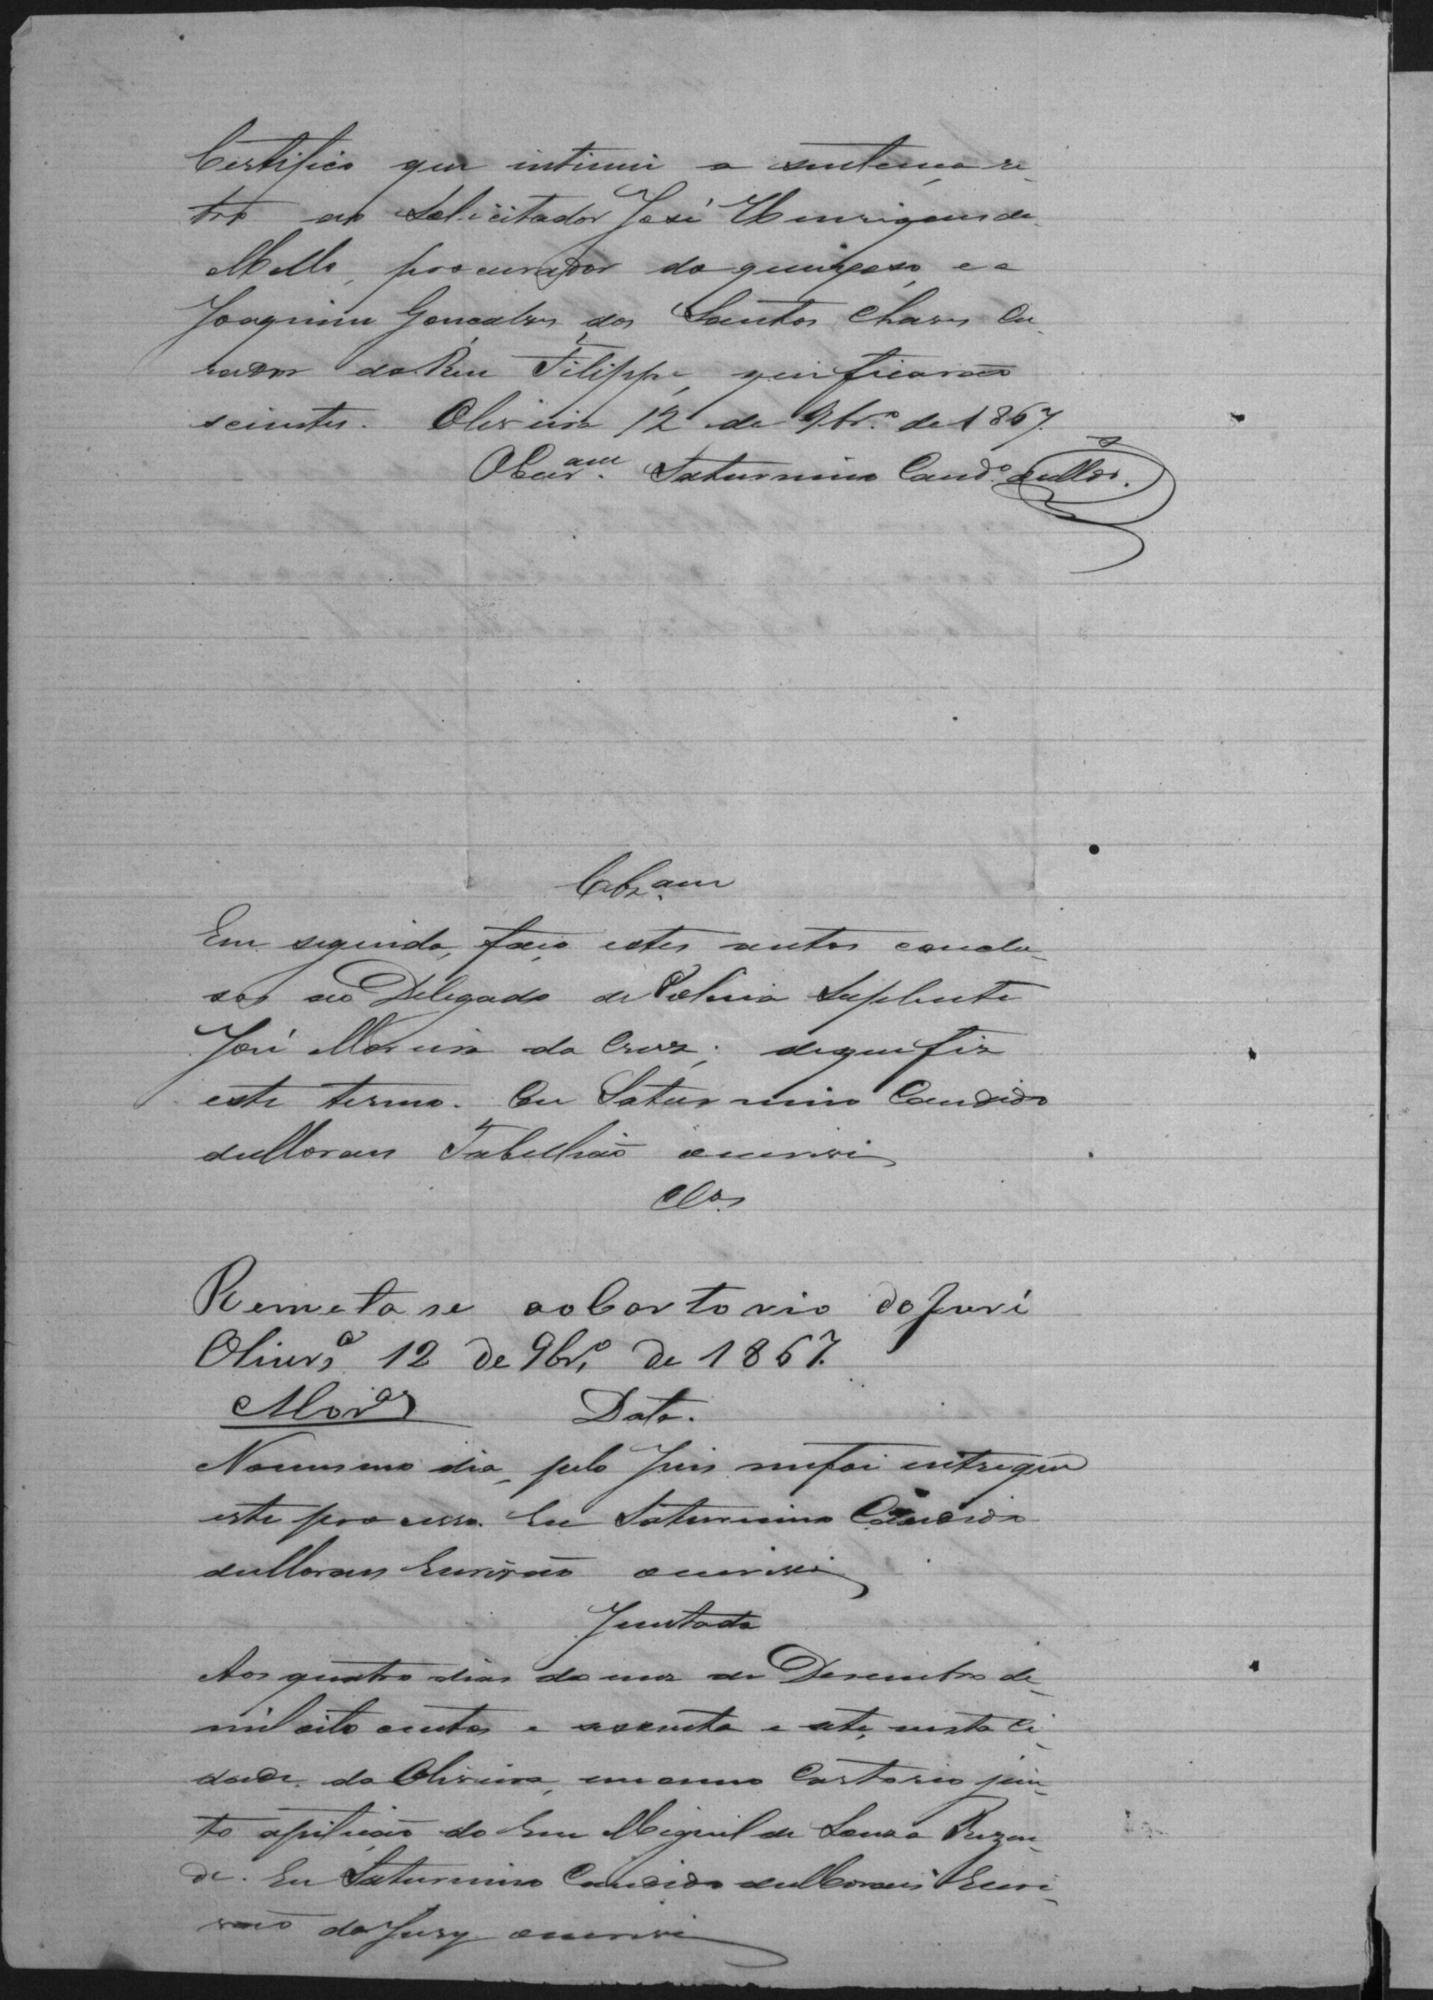 Certifico que intimei a sentença re-
tro ao Solicitador José Henriques de
Mello, procurador do queixoso, e a
Joaquim Gonçalves dos Santos Chaves Cu-
rador do Reu Filippe, que ficarão
scientes. Oliveira 12 de 9br.º de 1867.
O Escr.am Saturnino Cand.º de Mor.
Clz.am
Em seguida, faço estes autos conclu-
sos ao Delegado de Policia Suplente
José Moreira da Cruz; de que fiz
este termo. Eu Saturnino Candido
de Moraes Tabellião o escrevi
Clos
Remeta se ao Cartorio do Juri
Olivr.ª 12 de 9br.º de 1867.
Data.
No mesmo dia, pelo Juis me foi entregue
este processo. Eu Saturnino Candido
de Moraes Escrivão o escrevi
Juntada
Aos quatro dias do mez de Desembro de
mil oito centos e sessenta e sete, nesta Ci-
dade da Oliveira, em o meu Cartorio jun-
to a petição do Reu Miguel de Souza Rezen-
de. Eu Saturnino Candido de Moraes Escri-
vão do Jury o escrevi